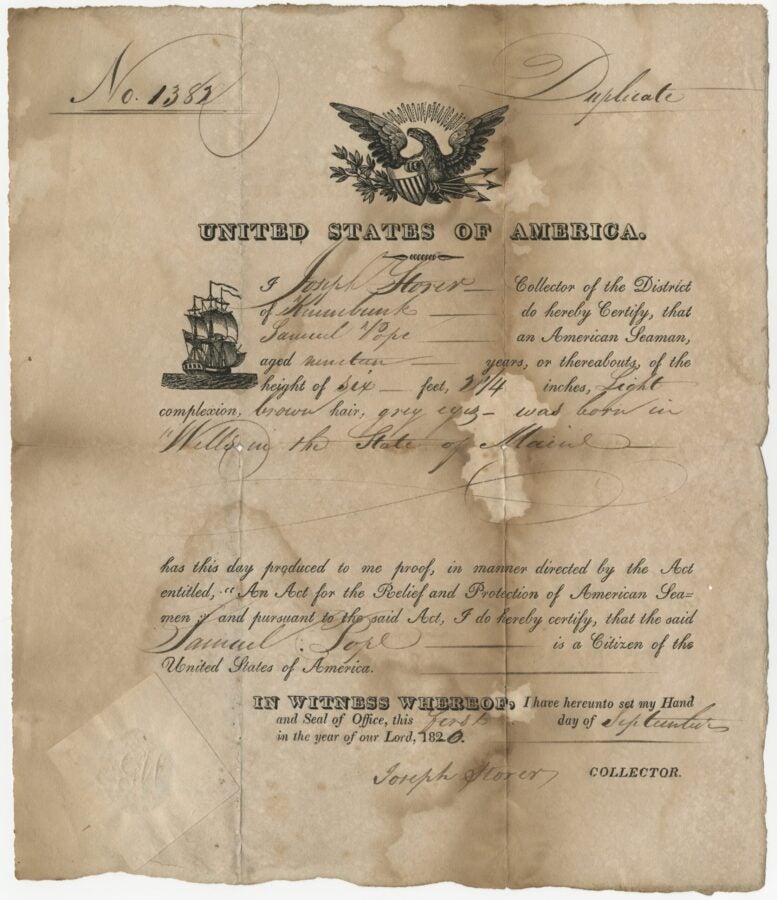 No. 1382 Duplicate
UNITED STATES OF AMERICA.
I Joseph Storer Collector of the District
of Kennebunk do hereby Certify, that
Samuel Pope an American Seaman,
aged nineteen years, or thereabouts, of the
height of six feet, 2 1/4 inches, Light
complexion, brown hair, grey eyes was born in
Wells in the State of Maine
has this day produced to me proof, in manner directed by the Act
entitled, "An Act for the Relief and Protection of American Sea=
men;" and pursuant to the said Act, I do hereby certify, that the said
Samuel Pope is a Citizen of the
United States of America.
IN WITNESS WHEREOF, I have hereunto set my Hand
and Seal of Office, this first day of September
in the year of our Lord, 1820.
Joseph Storer COLLECTOR.